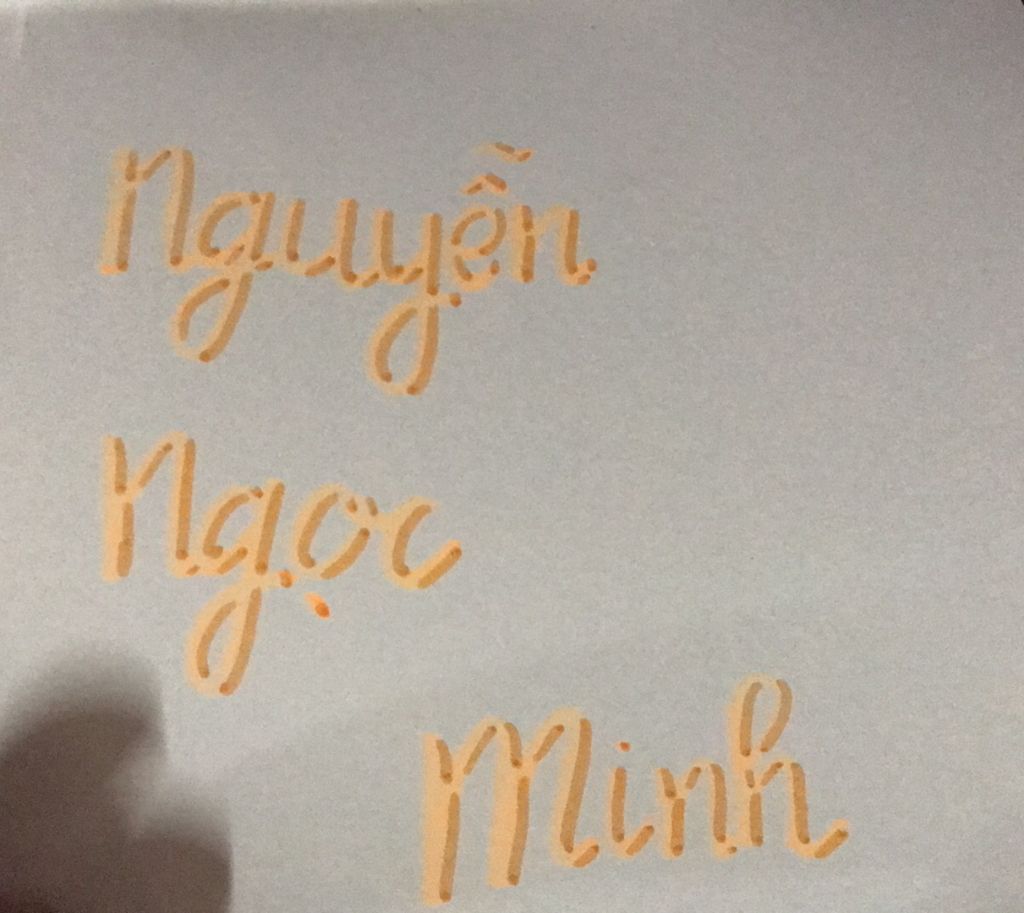 Nguyễn
Ngọc
Minh